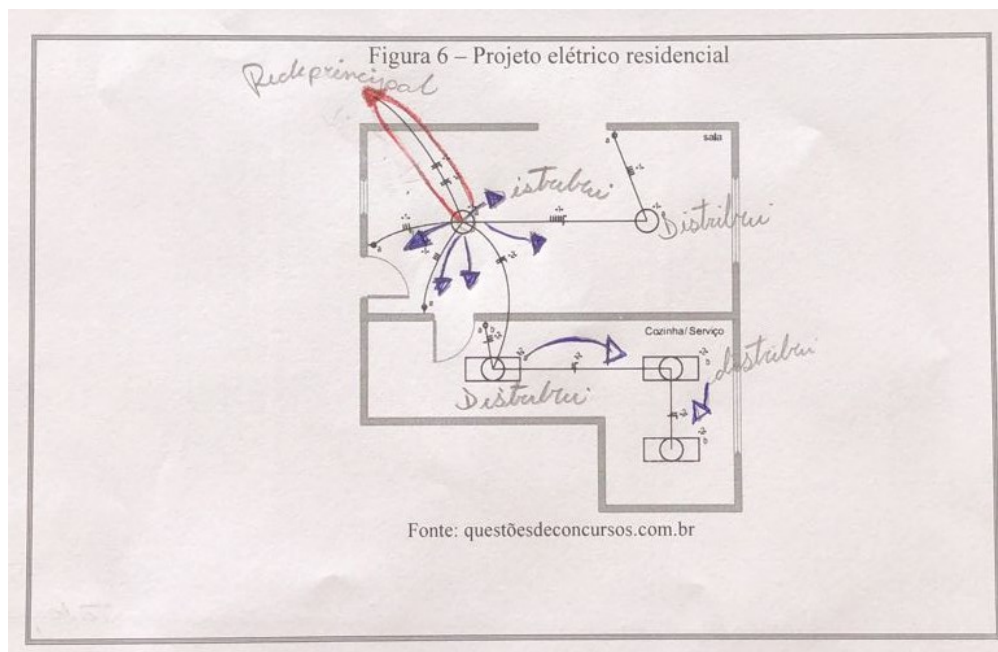 Figura 6 – Projeto elétrico residencial
Rede principal
sala
istribui
Distribui
Cozinha/ Serviço
distribui
Distribui
Fonte: questõesdeconcursos.com.br